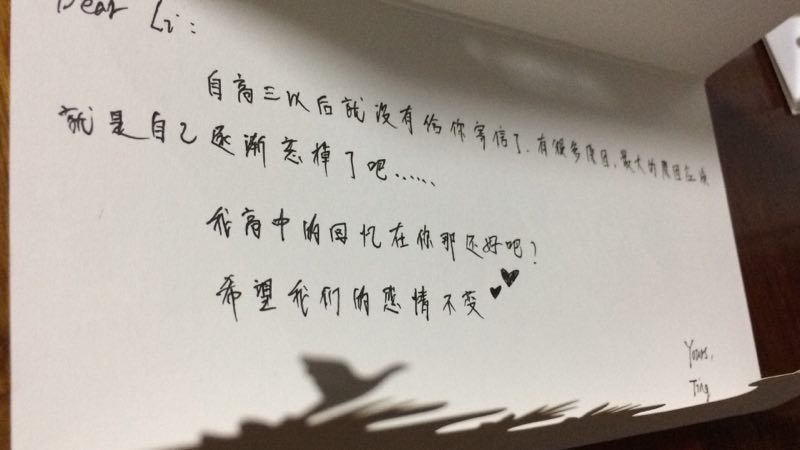 Dear Li:
自高三以后就没有给你寄信了.有很多原因,最大的原因应该
就是自己逐渐忘掉了吧……
我高中的回忆在你那还好吧?
希望我们的感情不变
Yours,
Ting